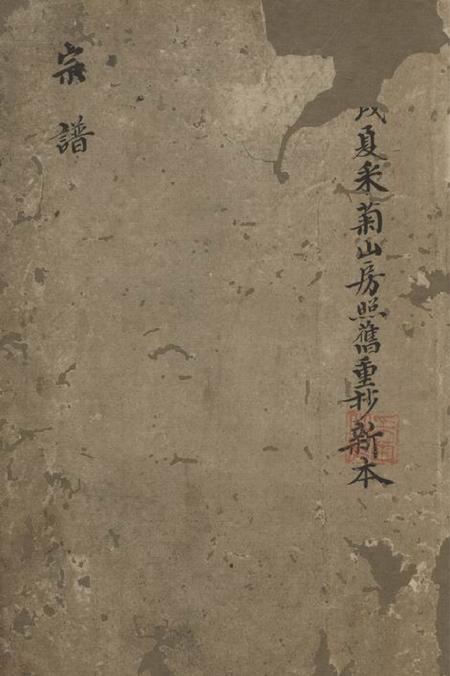 戌夏釆菊山房照舊重抄新本
宗譜